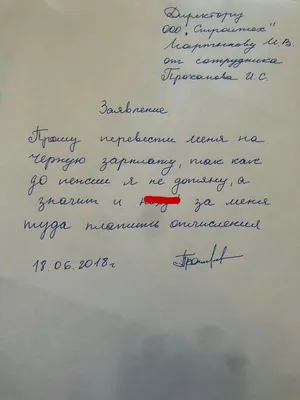 Директору
ООО „Стройтех"
Мартынову И.В.
от сотрудника
Проханова И.С.
Заявление
Прошу перевести меня на
чёрную зарплату, так как
до пенсии я не дотяну, а
значит и за меня
туда платить отчисления
18.06.2018г